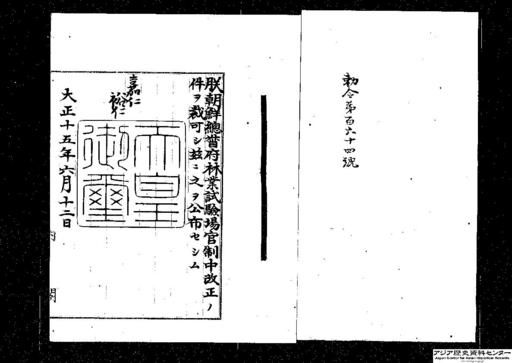 勅令第百六十四號
朕朝鮮總督府林業試驗場官制中改正ノ
件ヲ裁可シ茲ニ之ヲ公布セシム
嘉仁
裕仁
天皇
御璽
大正十五年六月十二日
内閣
アジア歴史資料センター
Japan Center for Asian Historical Records